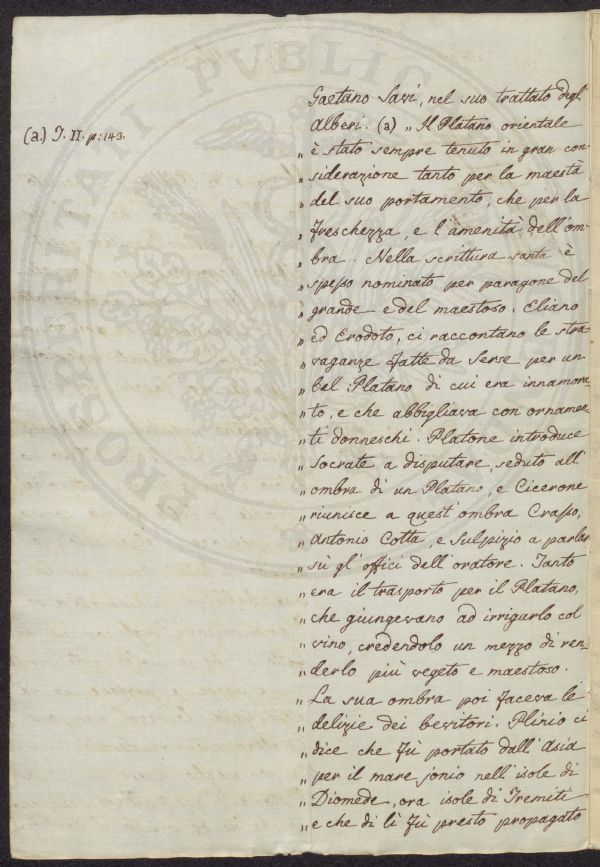 Gaetano Savi, nel suo trattato degl'
(a.) T. II. p: 143.
Alberi. (a) „ Il Platano orientale
„ è stato sempre tenuto in gran con
„ siderazione tanto per la maestà
„ del suo portamento, che per la
„ freschezza, e l'amenità dell'om=
„ bra. Nella scrittura santa è
„ spesso nominato per paragone del
„ grande e del maestoso. Eliano
„ ed Erodoto, ci raccontano le stra=
„ vaganze fatte da Serse per un
„ bel Platano di cui era innamora=
„ to, e che abbigliava con ornamen=
„ ti donneschi. Platone introduce
„ Socrate a disputare, seduto all'
„ ombra di un Platano, e Cicerone
„ riunisce a quest'ombra Crasso,
„ Antonio Cotta, e Sulpizio a parlar
„ sù gl'offici dell'oratore. Tanto
„ era il trasporto per il Platano,
„ che giungevano ad irrigarlo col
„ vino, credendolo un mezzo di ren=
„ derlo più vegeto e maestoso.
„ La sua ombra poi faceva le
„ delizie dei bevitori. Plinio ci
„ dice che fù portato dall'Asia
„ per il mare jonio nell'isole di
„ Diomede, ora isole di Tremiti
„ e che di lì fù presto propagato
PROSPERITATI PUBLIC